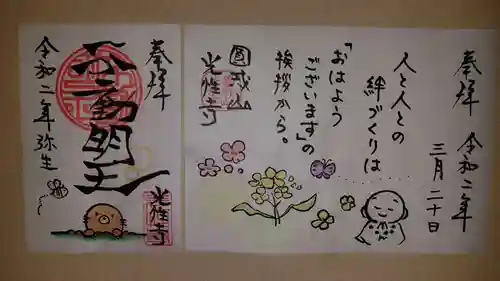 奉拝 令和二年
三月二十日
人と人との
絆づくりは
「おはよう
ございます」の
挨拶から。
光雅寺
奉拝
不動明王
令和二年弥生
光雅寺